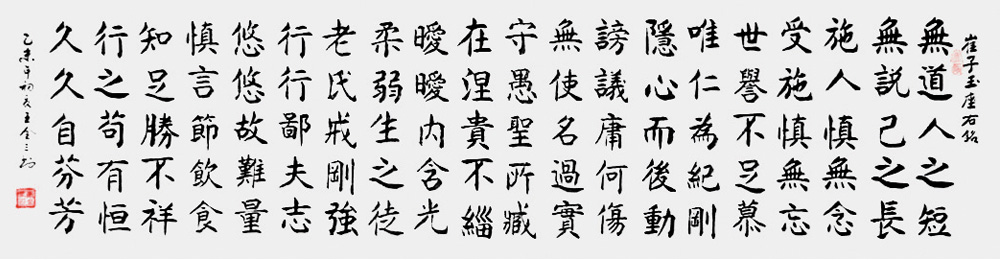 崔子玉座右銘
無道人之短
無説己之長
施人慎無念
受施慎無忘
世譽不足慕
唯仁為紀剛
隱心而後動
謗議庸何傷
無使名過實
守愚聖所臧
在涅貴不緇
曖曖内含光
柔弱生之徒
老氏戒剛強
行行鄙夫志
悠悠故難量
慎言節飲食
知足勝不祥
行之苟有恒
久久自芬芳
乙未年初夏王